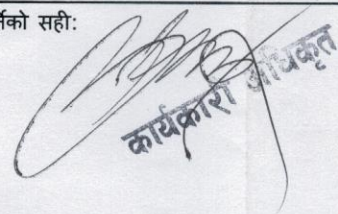 र्नेको सही:
कार्यकारी अधिकृत